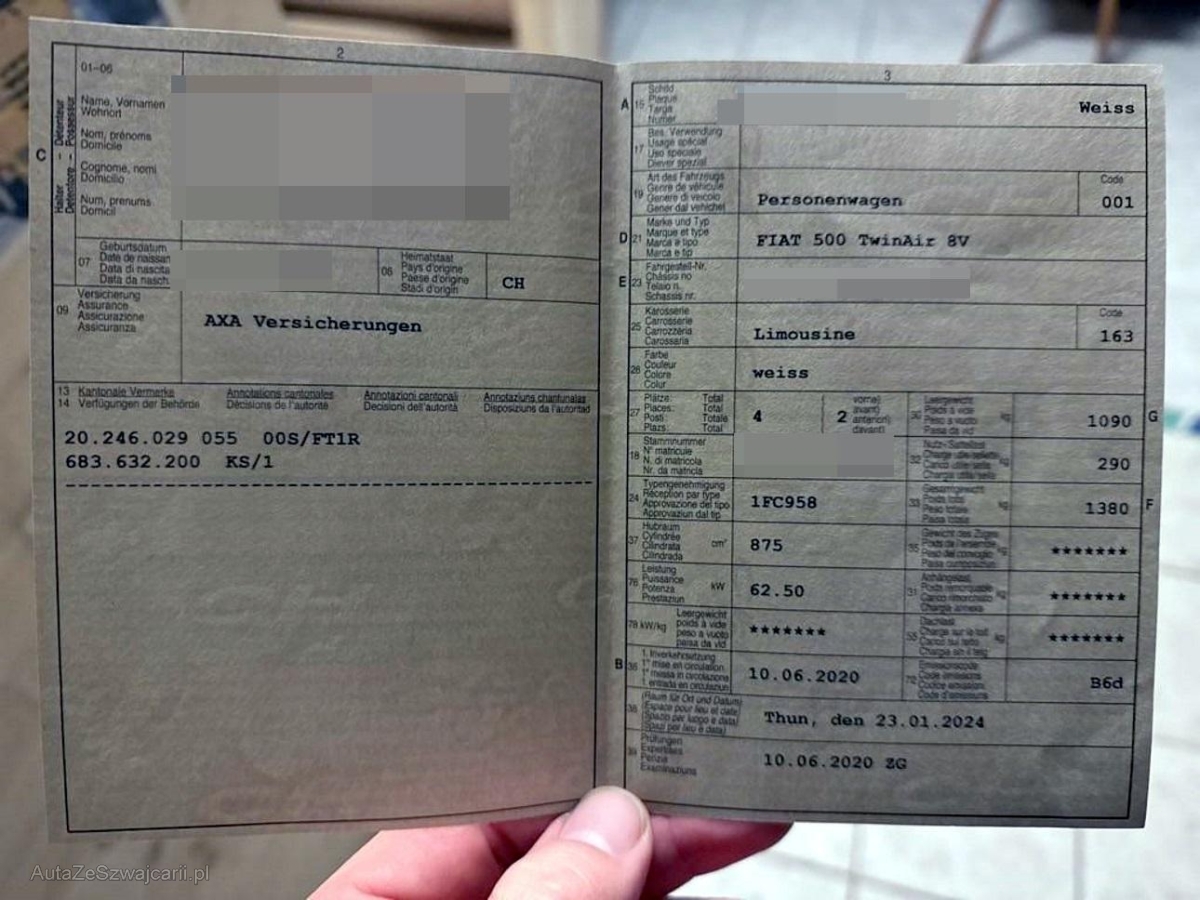 2
01-06
C
Halter – Détenteur
Detentore – Possessur
Name, Vornamen
Wohnort
Nom, prénoms
Domicile
Cognome, nomi
Domicilio
Num, prenums
Domicil
07
Geburtsdatum
Date de naissan
Data di nascita
Data da nasch.
08
Heimatstaat
Pays d'origine
Paese d'origine
Stadi d'origin
CH
09
Versicherung
Assurance
Assicurazione
Assicuranza
AXA Versicherungen
13 Kantonale Vermerke Annotations cantonales Annotazioni cantonali Annotaziuns chantunalas
14 Verfügungen der Behörde Décisions de l'autorité Decisioni dell'autorità Disposiziuns da l'autoritad
20.246.029 055 00S/FT1R
683.632.200 KS/1
3
A 15
Schild
Plaque
Targa
Numer
Weiss
17
Bes. Verwendung
Usage spécial
Uso speciale
Diever spezial
19
Art des Fahrzeugs
Genre de véhicule
Genere di veicolo
Gener dal vehichel
Personenwagen
Code
001
D 21
Marke und Typ
Marque et type
Marca e tipo
Marca e tip
FIAT 500 TwinAir 8V
E 23
Fahrgestell-Nr.
Châssis no
Telaio n.
Schassis nr.
25
Karosserie
Carrosserie
Carrozzeria
Carossaria
Limousine
Code
163
26
Farbe
Couleur
Colore
Colur
weiss
27
Plätze: Total
Places: Total
Posti: Totale
Plazs: Total
4
2
vorne)
avant)
anteriori)
davant)
30
Leergewicht
Poids à vide
Peso a vuoto
Paisa da vid
kg
1090
G
18
Stammnummer
N° matricule
N. di matricola
Nr. da matricla
32
kg
290
24
Typengenehmigung
Réception par type
Approvazione del tipo
Approvaziun dal tip
1FC958
33
Gesamtgewicht
Poids total
Peso totale
Paisa totala
kg
1380
F
37
Hubraum
Cylindrée
Cilindrata
Cilindrada
cm³
875
35
Gewicht des Zuges
kg
*******
76
Leistung
Puissance
Potenza
Prestaziun
kW
62.50
31
Anhängelast
kg
*******
78 kW/kg
Leergewicht
poids à vide
peso a vuoto
paisa da vid
*******
55
Dachlast
Charge sur le toit
kg
*******
B 36
1. Inverkehrsetzung
1re mise en circulation
1a messa in circolazione
1. entrada en circulaziun
10.06.2020
72
Emissionscode
Code émissions
Codice emissioni
Code d'emissiuns
B6d
38
(Raum für Ort und Datum)
(Espace pour lieu et date)
(Spazio per luogo e data)
(Spazi per lieu e data)
Thun, den 23.01.2024
39
Prüfungen
Expertises
Perizie
Examinaziuns
10.06.2020 ZG
AutaZeSzwajcarii.pl